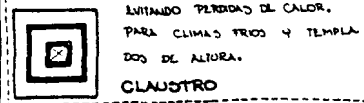 EVITANDO PERDIDAS DE CALOR.
PARA CLIMAS FRIOS Y TEMPLA
DOS DE ALTURA.
CLAUSTRO